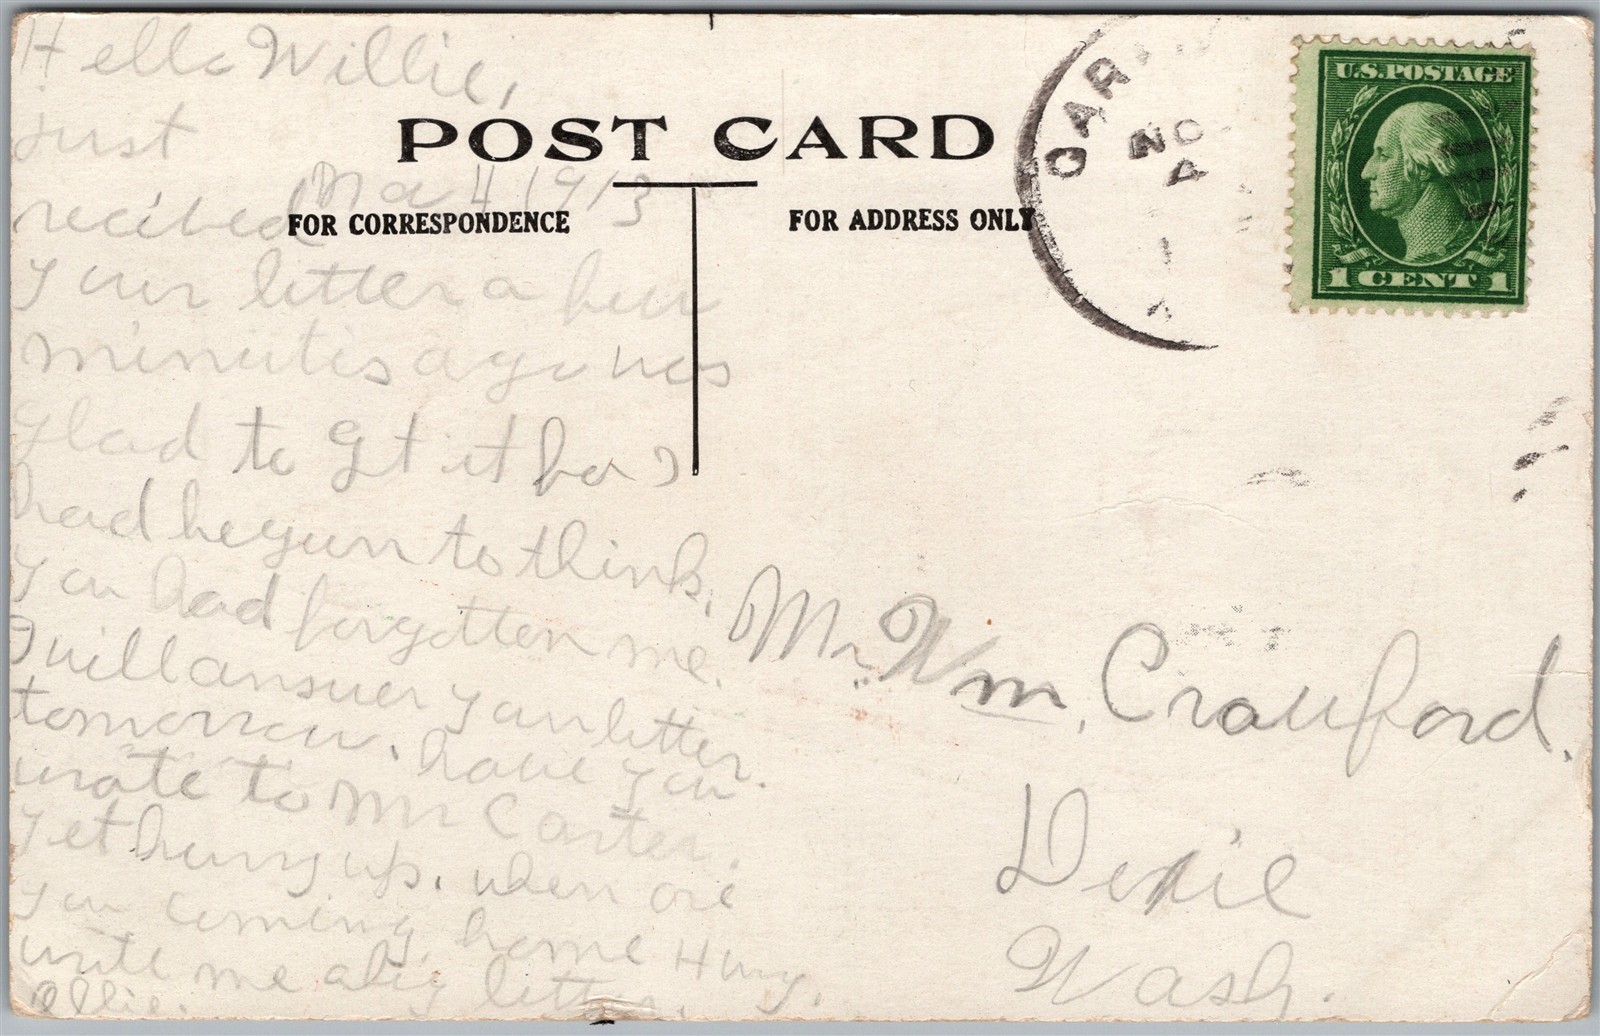 Hello Willie,
just
Nov 4 1913
recieved
your letter a few
minutes ago was
glad to get it for I
had begun to think
you had forgotten me.
I will answer your letter
tomorrow. have you
wrote to Mr Carter
yet hurry up. when are
you coming home Hury.
write me a big letter.
Ollie.
POST CARD
FOR CORRESPONDENCE
FOR ADDRESS ONLY
U.S. POSTAGE
1 CENT 1
Mr. Wm. Crawford.
Dixie
Wash.